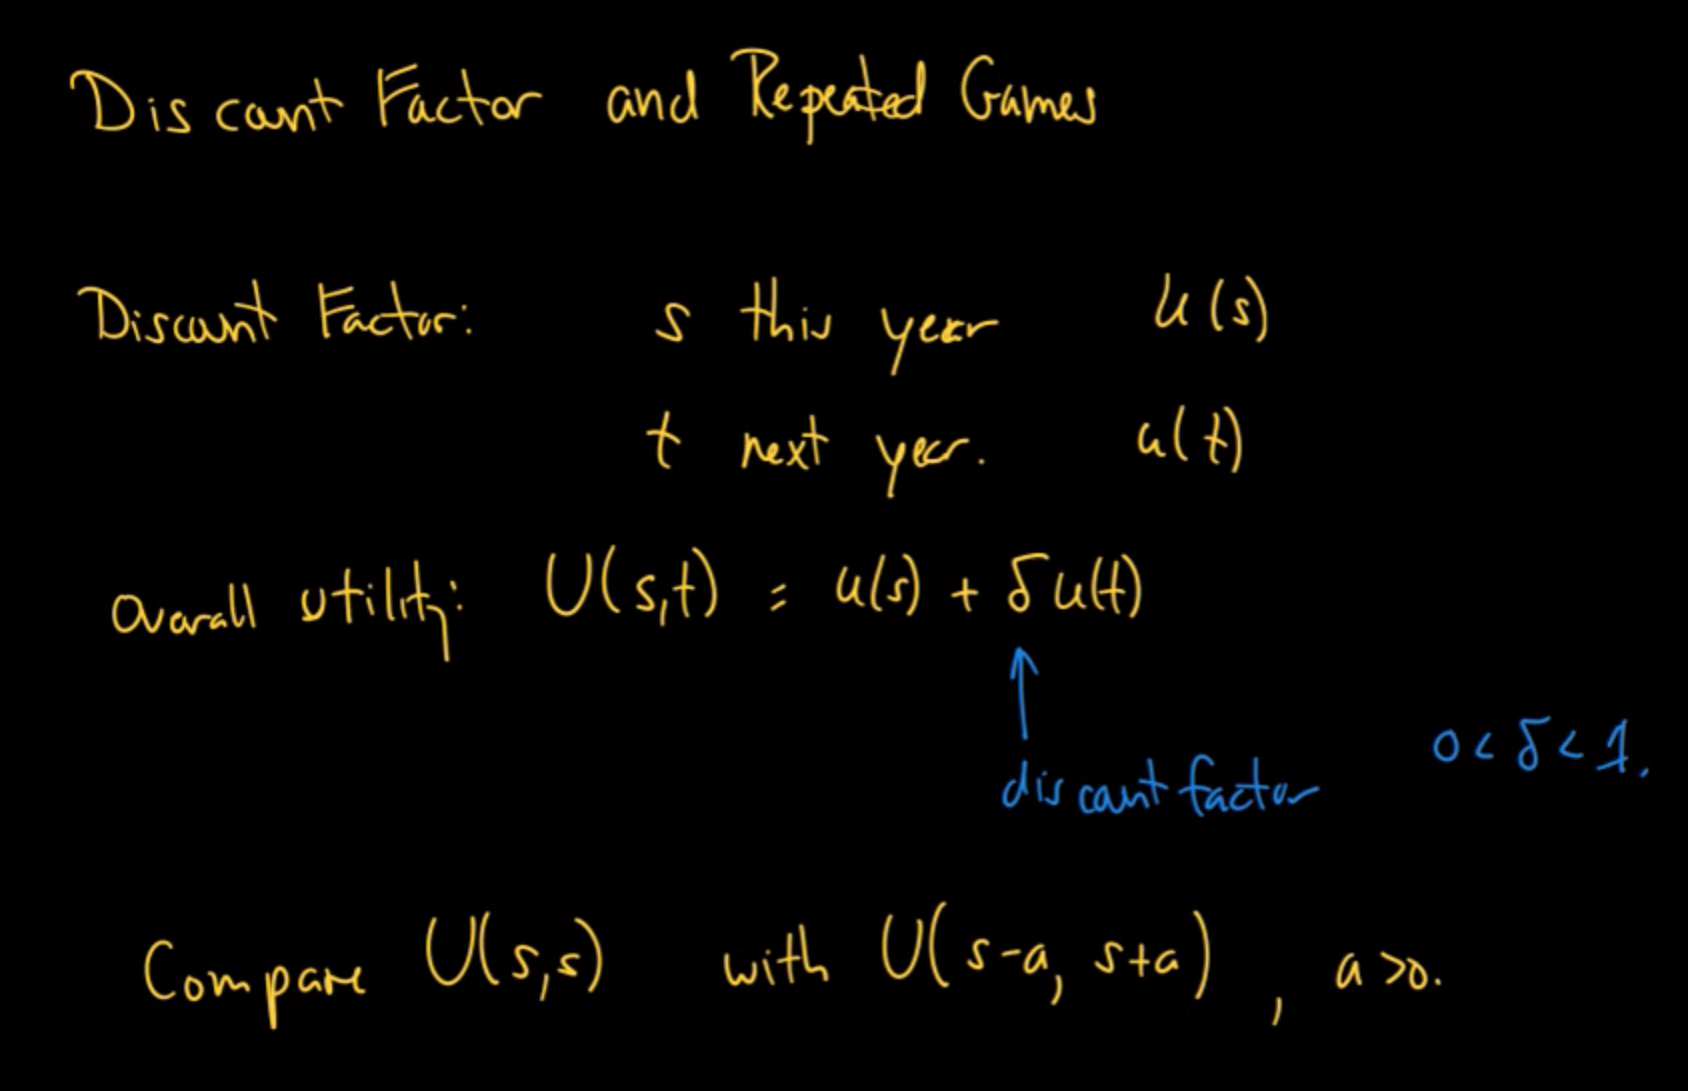 Discount Factor and Repeated Games
Discount Factor: s this year u(s)
t next year. u(t)
Overall utility: U(s,t) = u(s) + δu(t)
↑
discount factor 0<δ<1.
Compare U(s,s) with U(s-a, s+a), a>0.